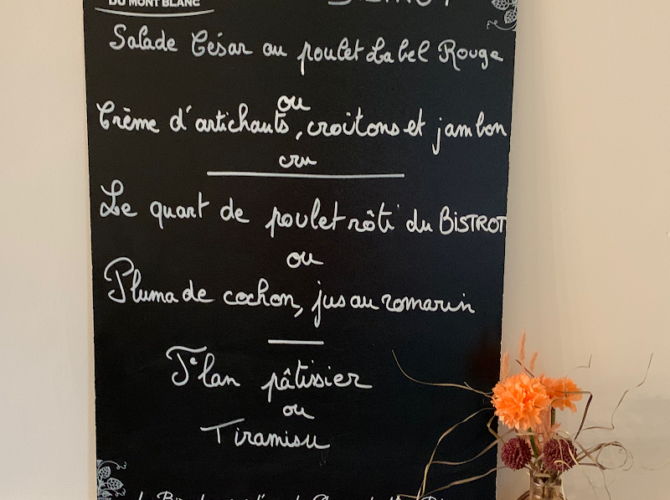 DU MONT BLANC
BISTROT
Salade César au poulet Label Rouge
ou
Crème d'artichauts, croûtons et jambon
cru
Le quart de poulet rôti du BISTROT
ou
Pluma de cochon, jus au romarin
Flan pâtissier
ou
Tiramisu